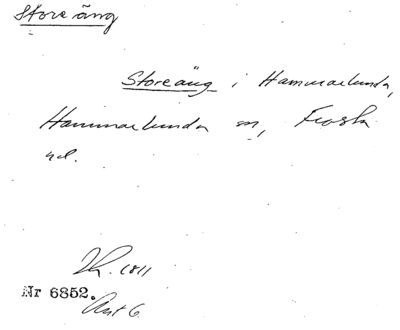 Storeäng
Storeäng i Hammarlunda,
Hammarlunda sn, Frosta
hd.
1811
Nr 6852.
Akt 6